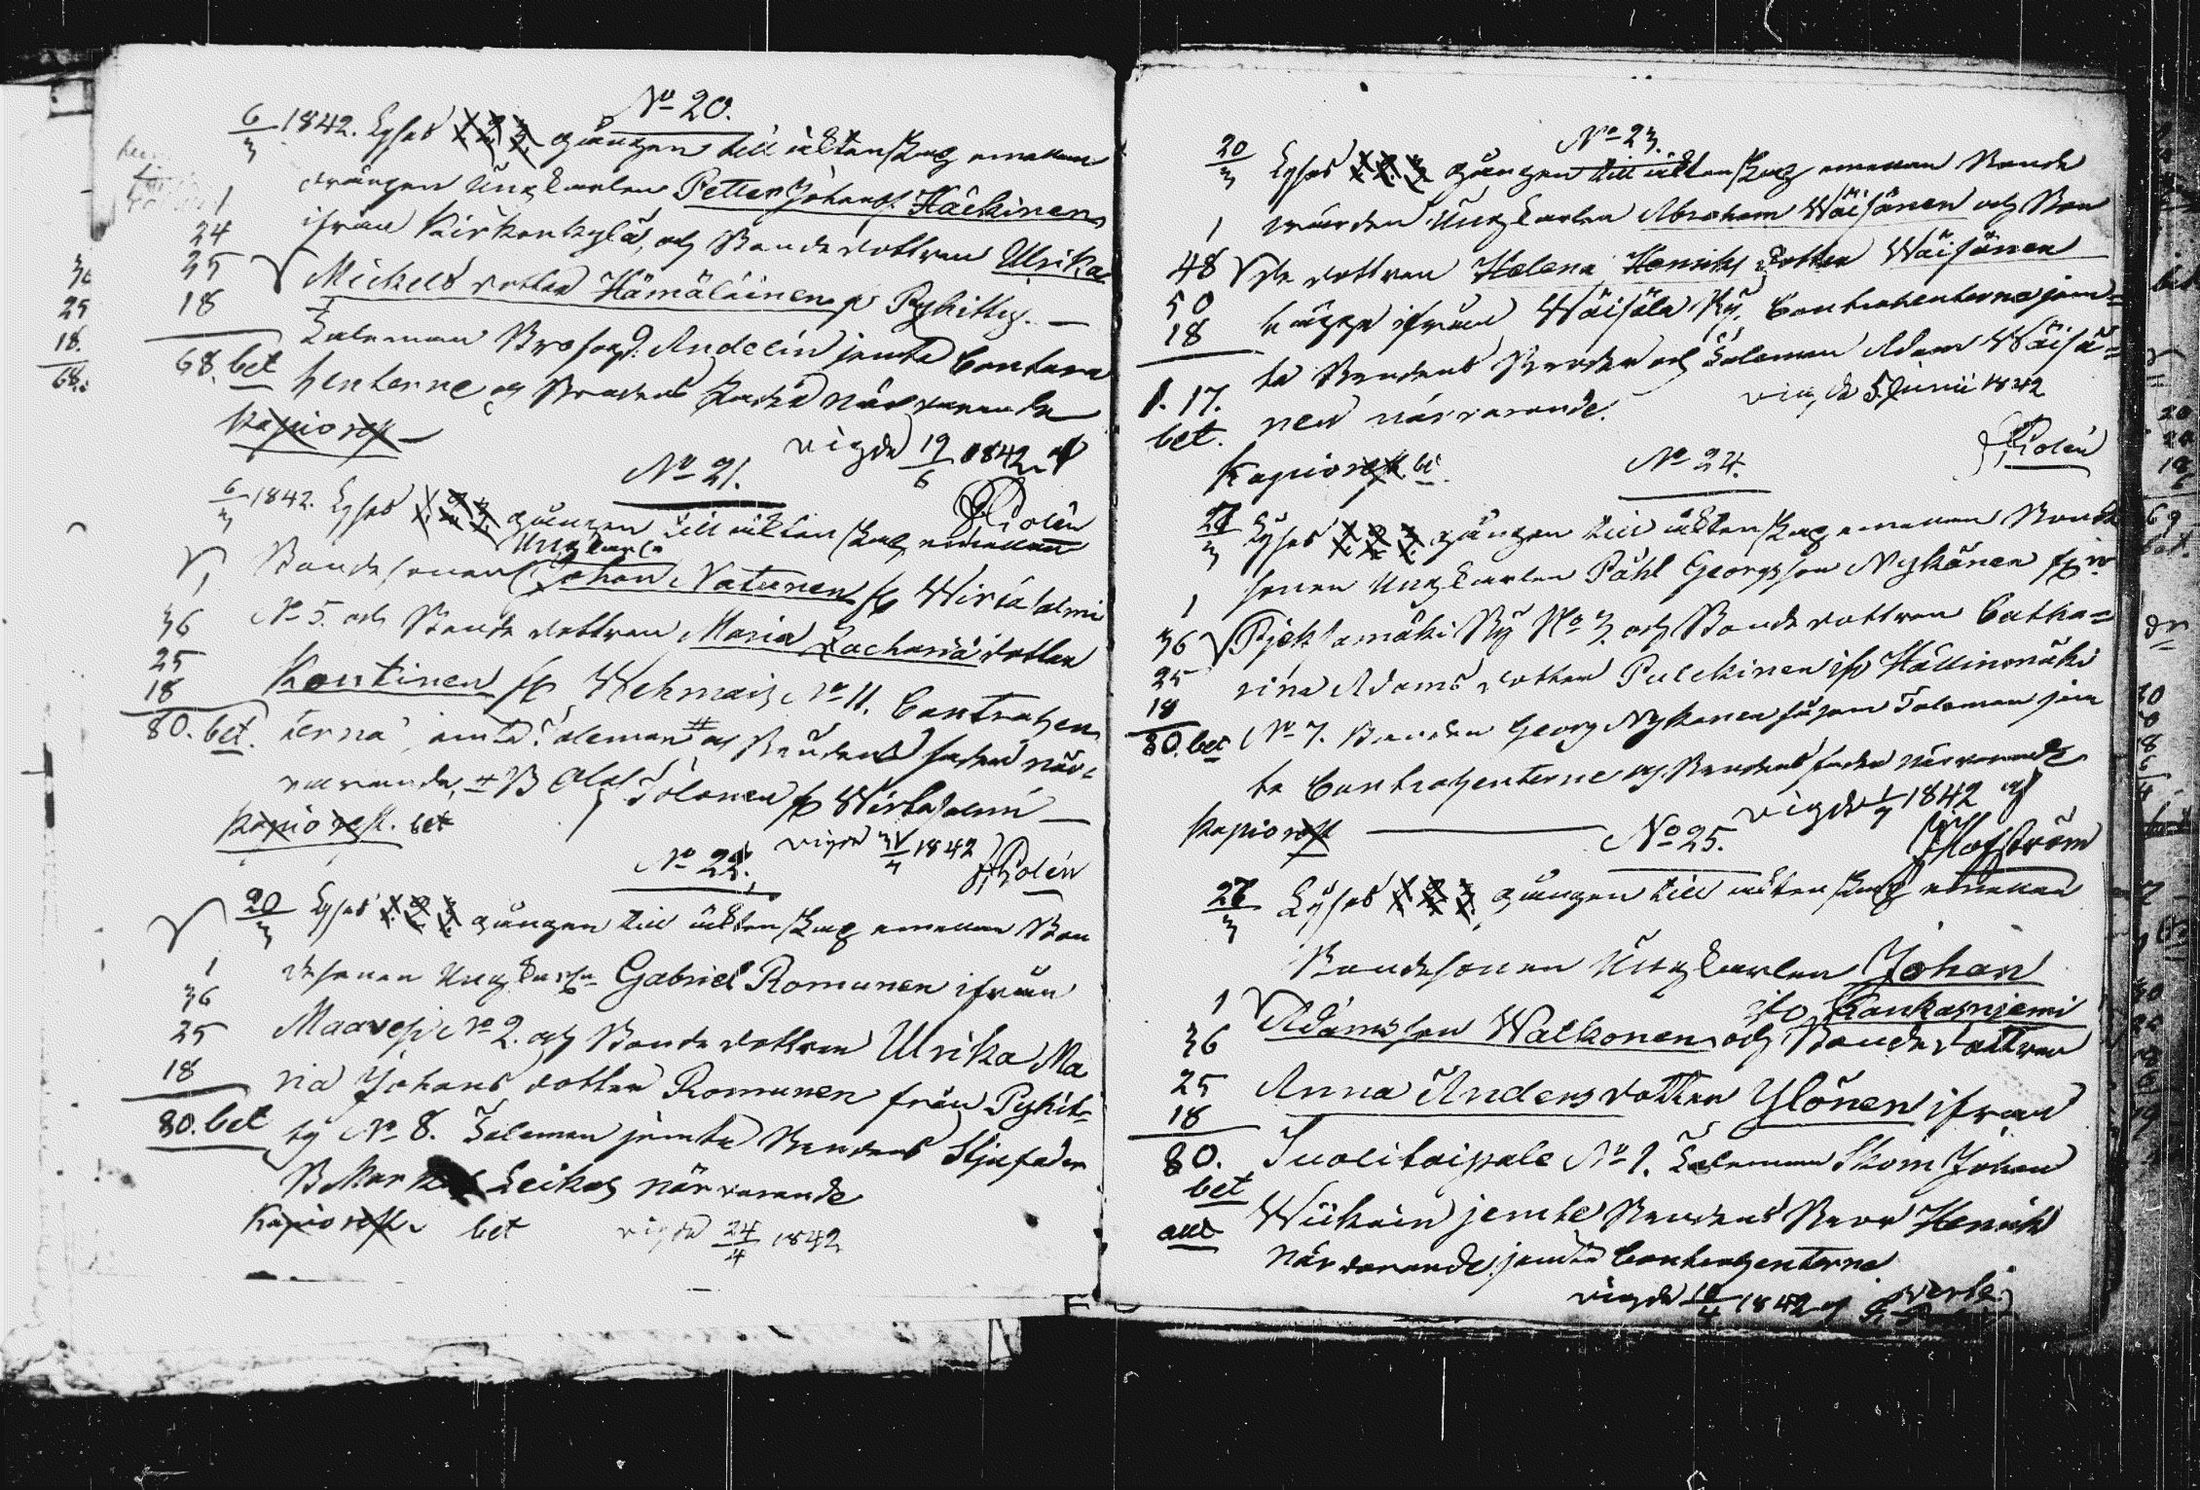 No 20.
6/3 1842. Lyses 1. 2. 3. gången till äktenskap emellan
drängen Ungkarlen Petter Johanss. Häckinen
ifrån Kirkonkylä, och Bondedottren Ulrika
Mickels dotter Hämäläinen fr Pyhitty. —
Taleman Br Andelin jemte Contra
henterne och Brudens fader närvarande
1
24
25
18
68. bet
36
25
18.
68.
Kapio rest —
vigde 19/6 1842 af
Polén
No 21.
6/3 1842. Lyses 1. 2. 3. gången till äktenskap emellan
Bondesonen Ungkarlen Johan Natunen fr Wirtasalmi
No 5. och Bonde dottren Maria Zachariædotter
Kontinen fr Wehmais No 11. Contrahen
terna jemte Taleman # och Brudens fader när-
varande, # B Olof Tolonen fr Wirtasalmi —
1
36
25
18
80. bet.
Kapio rest. bet
vigde 1842
Polén
No 22.
20/3 Lyses 1. 2. 3. gången till äktenskap emellan Bon
desonen Ungkarln Gabriel Romunen ifrån
Maavesi No 2. och Bonde dottren Ulrika Ma
ria Johans dotter Romunen från Pyhit-
ty No 8. Taleman jemte Brudens Stjufader
B Leikas närvarande
1
36
25
18
80. bet
Kapio rest. bet
vigde 24/4 1842
No 23.
20/3 Lyses 1. 2. 3. gången till äktenskap emellan Bonde
Ungkarlen Abraham Wäisänen och Bon
de dottren Helena Henriks dotter Wäisänen
bägge ifrån Wäisälä By, Contrahenterna jem=
te Brudens Broder och Taleman Adam Wäisä=
nen närvarande.
1
48
50
18
1. 17.
bet.
vigde 5 Junii 1842
Polén
Kapio rest. bt
No 24.
27/3 Lyses 1. 2. 3. gången till äktenskap emellan Bonde
sonen Ungkarlen Påhl Georgsson Nykänen från
Pjeksamäki By No 3. och Bonde dottren Catha=
rina Adams dotter Pulckinen ifr Hällinmäki
No 7. Bonden Georg Nykänen såsom Taleman jem
te Contrahenterne och Brudens fader närvarande
1
36
25
18
80. bet
vigde 1842 af
Hofström
Kapio rest
No 25.
27/3 Lyses 1. 2. 3. gången till äktenskap emellan
Bondesonen Ungkarlen Johan
ifr Kankasniemi
Adamsson Walkonen och Bonde dottren
Anna Anders dotter Ylönen ifrån
Suolitaipale No 1. Taleman Skom Johan
Wiikain jemte Brudens Bror Henrik
närvarande jemte Contrahenterne
1
36
25
18
80.
bet
vigde 1842 af